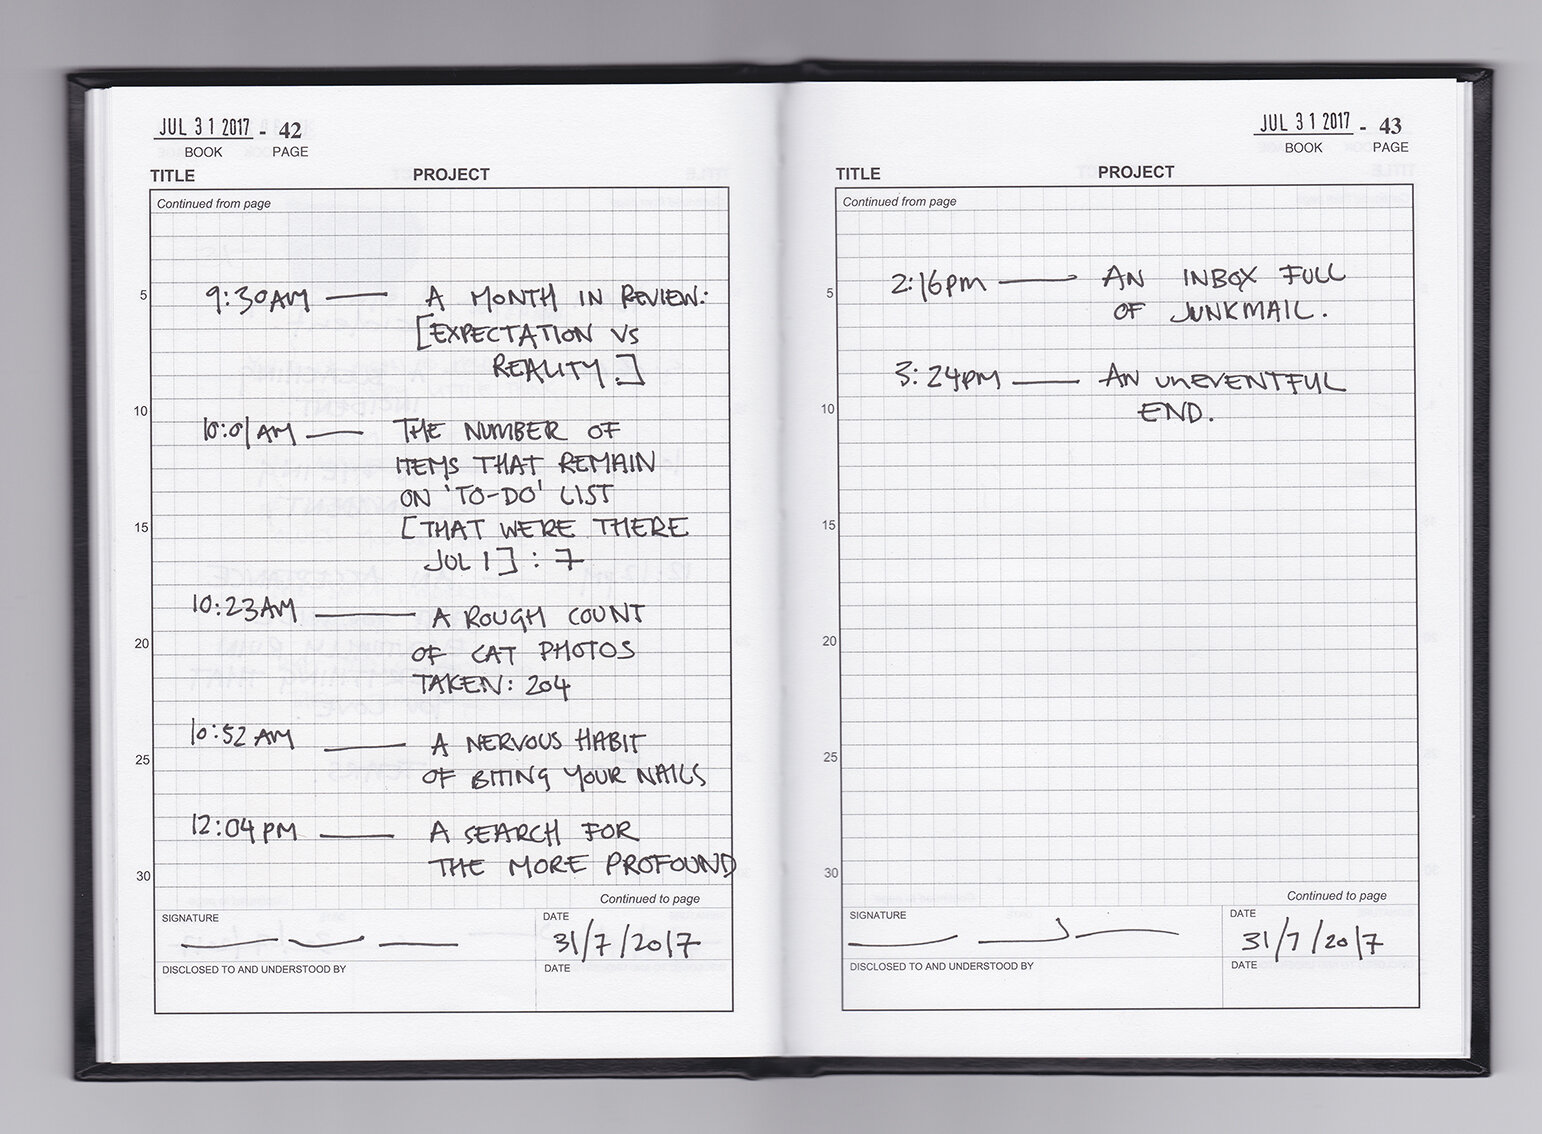 JUL 31 2017 - 42
BOOK PAGE
TITLE PROJECT
Continued from page
5
9:30AM — A MONTH IN REVIEW:
[EXPECTATION VS
REALITY.]
10
10:01AM — THE NUMBER OF
ITEMS THAT REMAIN
ON 'TO-DO' LIST
15
[THAT WERE THERE
JUL 1] : 7
10:23AM — A ROUGH COUNT
20
OF CAT PHOTOS
TAKEN: 204
10:52AM — A NERVOUS HABIT
25
OF BITING YOUR NAILS
12:04PM — A SEARCH FOR
THE MORE PROFOUND
30
Continued to page
SIGNATURE DATE
31/7/2017
DISCLOSED TO AND UNDERSTOOD BY DATE
JUL 31 2017 - 43
BOOK PAGE
TITLE PROJECT
Continued from page
5
2:16pm — AN INBOX FULL
OF JUNKMAIL.
3:24pm — AN UNEVENTFUL
10
END.
15
20
25
30
Continued to page
SIGNATURE DATE
31/7/2017
DISCLOSED TO AND UNDERSTOOD BY DATE